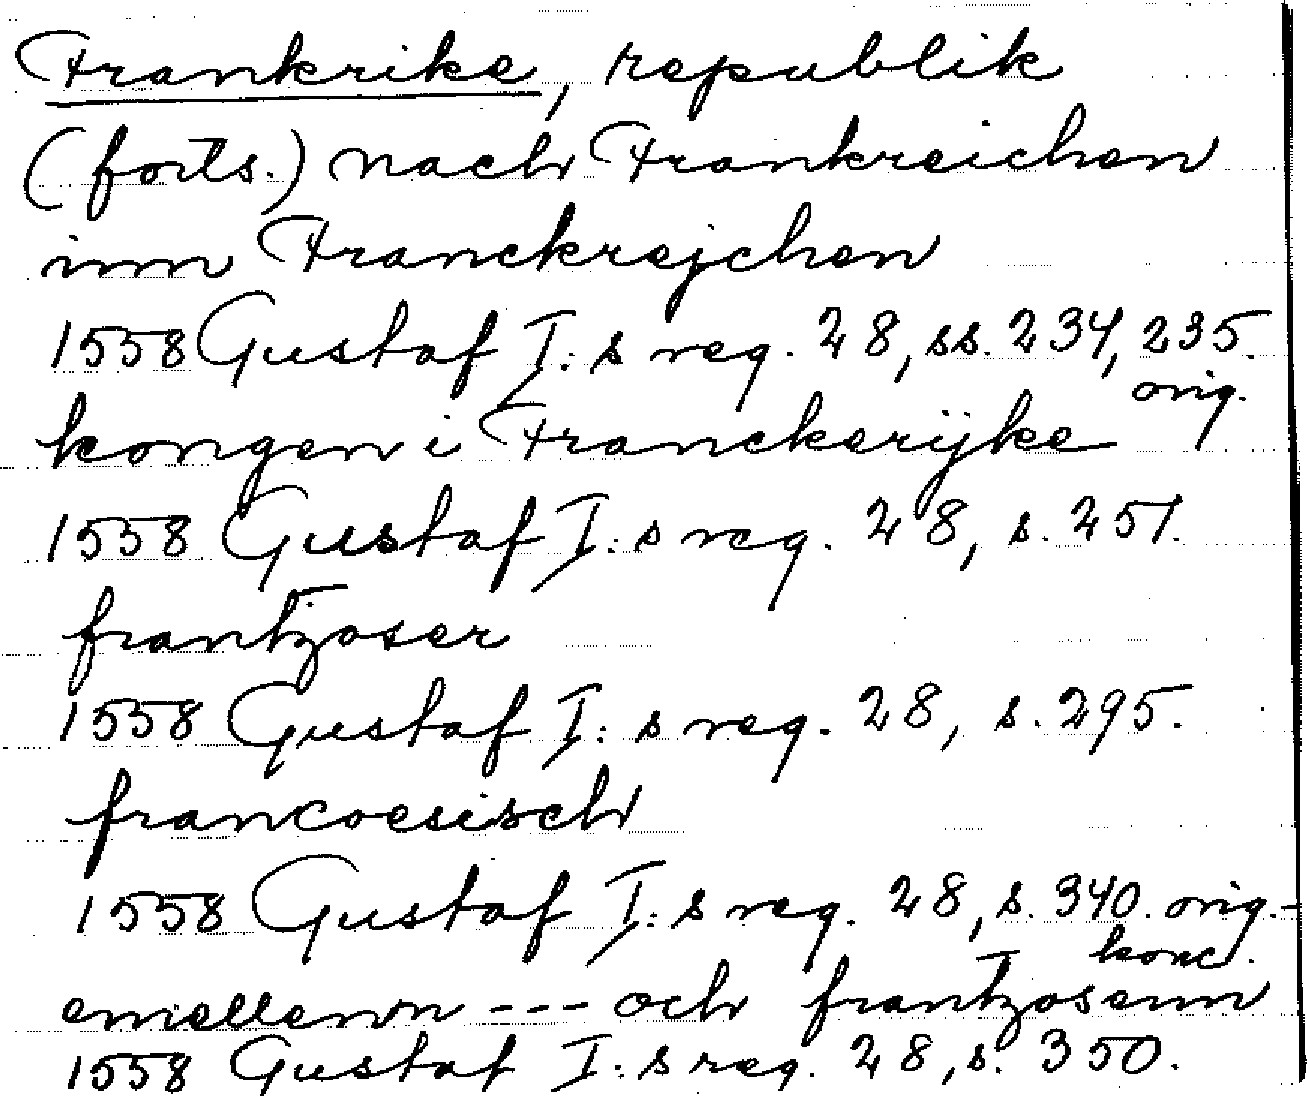 Frankrike, republik
(forts.) nach Frankreichen
inn Franckrejchen
1558 Gustaf I:s reg. 28, ss. 234, 235.
orig.
kongen i Franckerijke
1558 Gustaf I:s reg. 28, s. 251.
frantzoser
1558 Gustaf I:s reg. 28, s. 295.
francoesisch
1558 Gustaf I:s reg. 28, s. 340. orig.-
konc.
emellenn --- och frantzosenn
1558 Gustaf I:s reg. 28, s. 350.